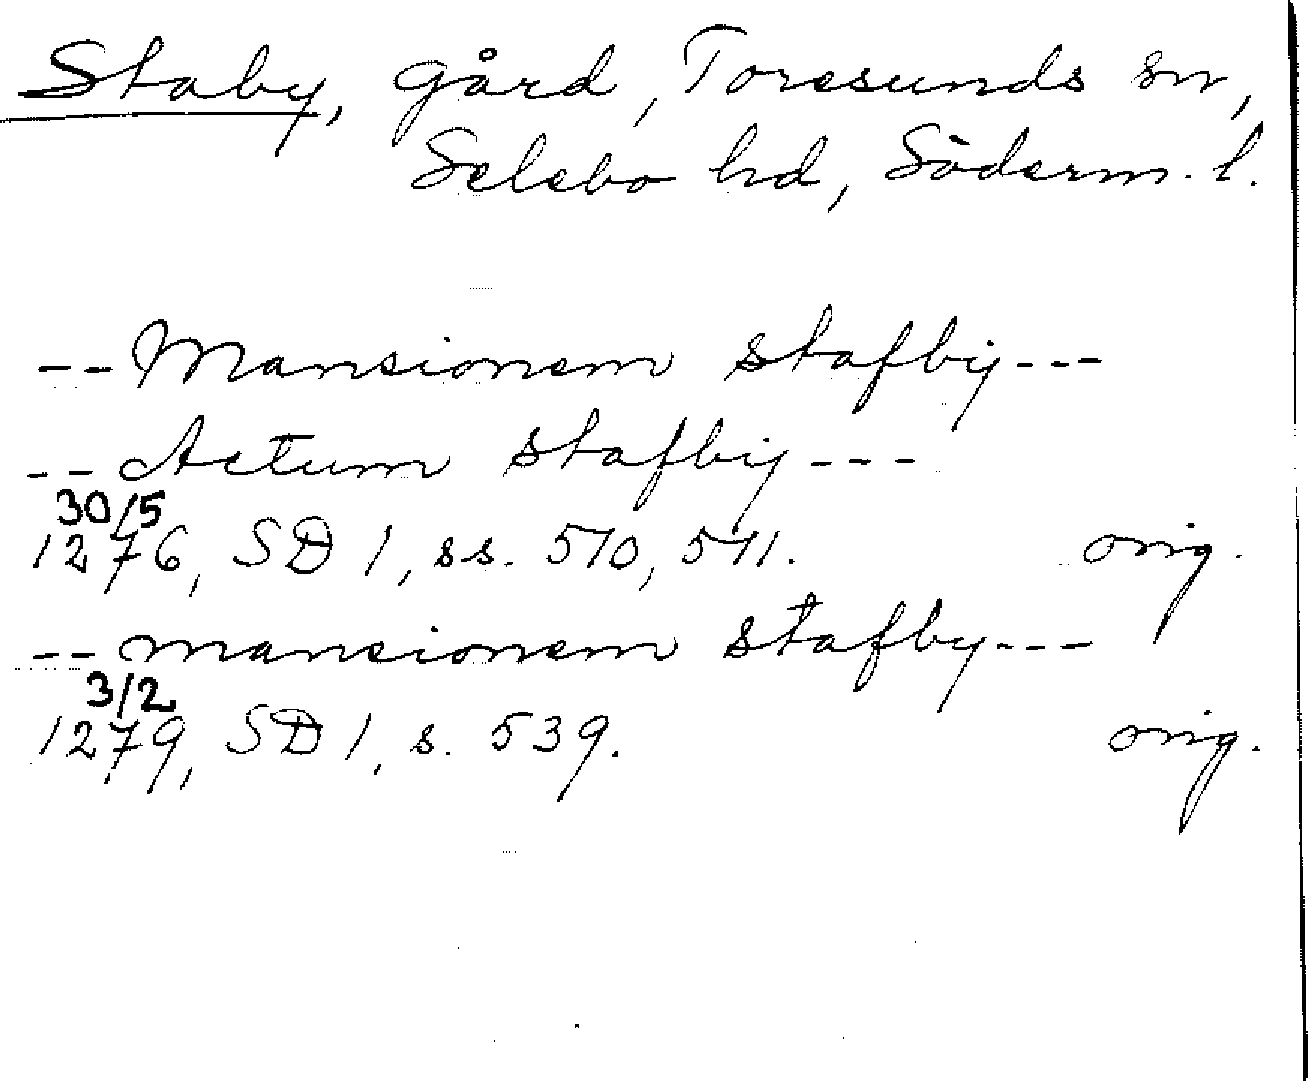 Staby, gård, Toresunds sn,
Selebo hd, Söderm. l.
-- Mansionem stafby ---
-- Actum stafby ---
30/5
1276, SD 1, ss. 510, 511. orig.
-- mansionem stafby ---
3/2
1279, SD 1, s. 539. orig.